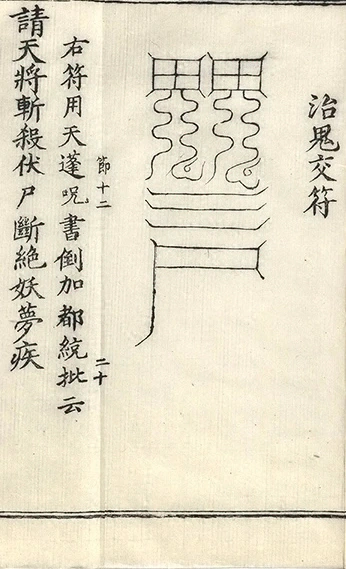 治鬼交符
節十二
二十
右符用天蓬呪書倒加都統批云
請天將斬殺伏尸斷絶妖夢疾